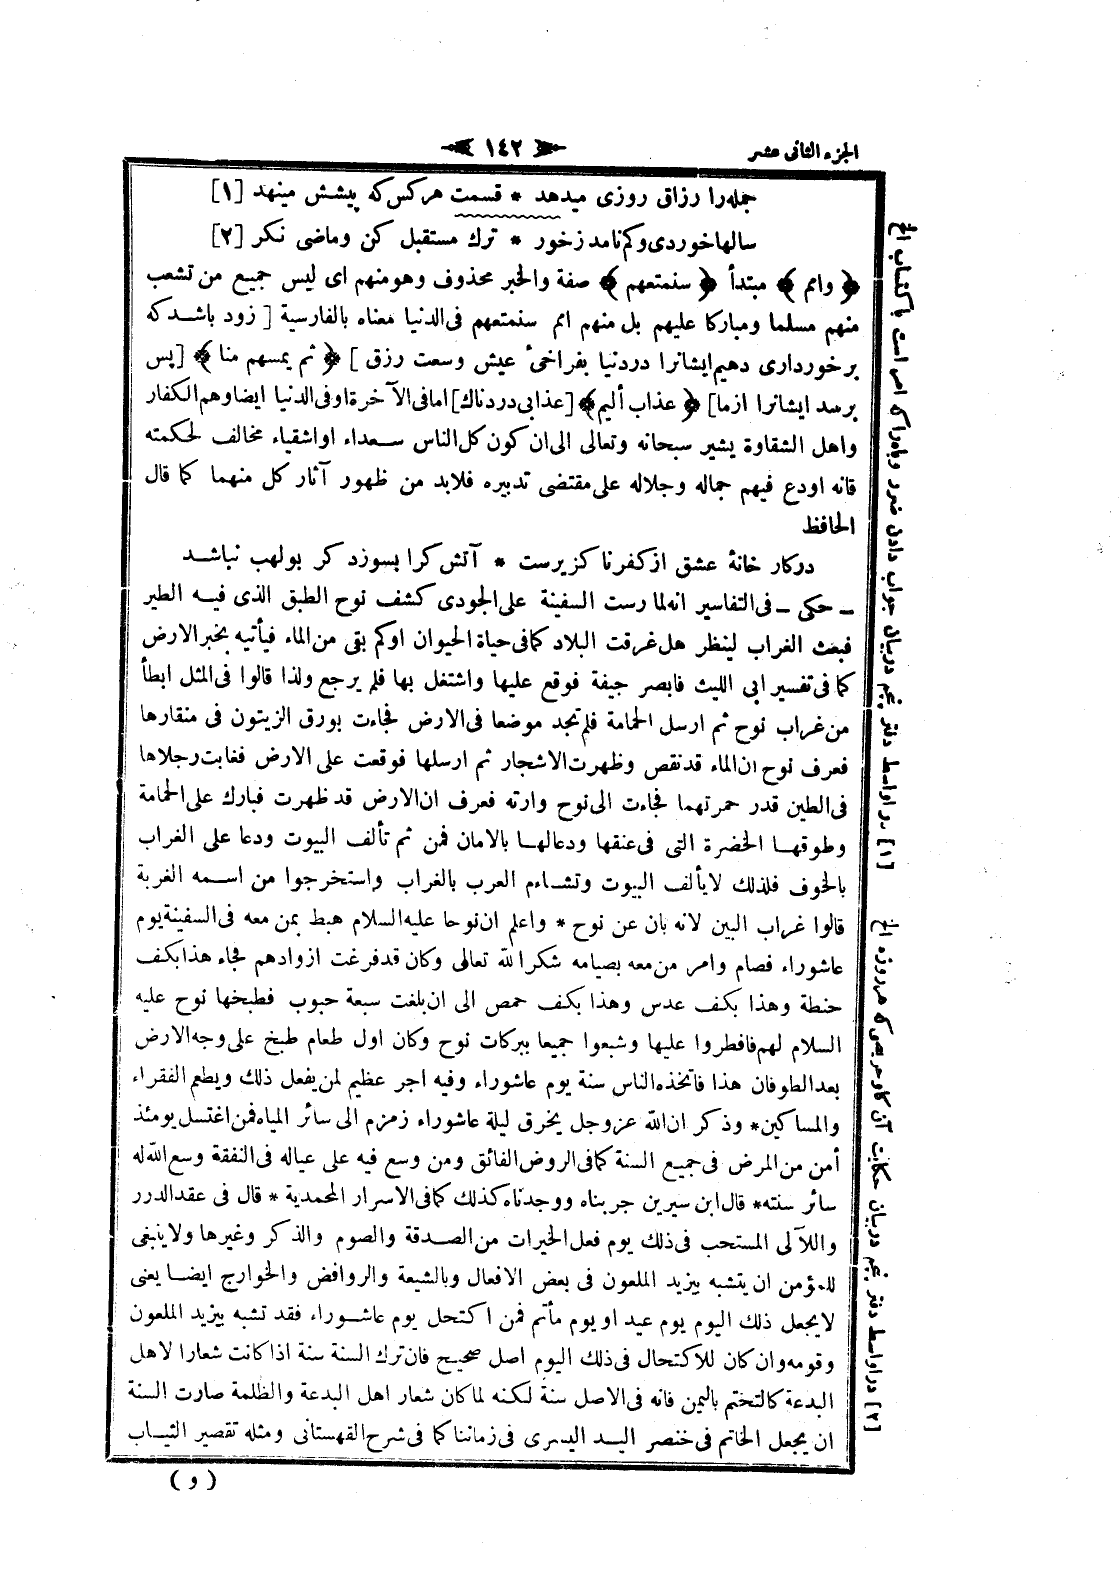 الجزء الثانى عشر
١٤٢
جمله را رزاق روزى ميدهد * قسمت هركس كه پيشش مينهد [١]
سالها خوردى وكم نامد زخور * ترك مستقبل كن وماضى نكر [٢]
﴿ وامم ﴾ مبتدأ ﴿ سنمتعهم ﴾ صفة والخبر محذوف وهو منهم اى ليس جميع من تشعب
منهم مسلما ومباركا عليهم بل منهم امم سنمتعهم فى الدنيا معناه بالفارسية [ زود باشد كه
برخوردارى دهيم ايشانرا دردنيا بفراخىء عيش وسعت رزق ] ﴿ ثم يمسهم منا ﴾ [پس
برسد ايشانرا ازما] ﴿ عذاب أليم ﴾ [عذابى دردناك] اما فى الآخرة او فى الدنيا ايضا وهم الكفار
واهل الشقاوة يشير سبحانه وتعالى الى ان كون كل الناس سعداء او اشقياء مخالف لحكمته
فانه اودع فيهم جماله وجلاله على مقتضى تدبيره فلابد من ظهور آثار كل منهما كما قال
الحافظ
دركار خانۀ عشق از كفر ناكزيرست * آتش كرا بسوزد كر بولهب نباشد
ـ حكى ـ فى التفاسير انه لما رست السفينة على الجودى كشف نوح الطبق الذى فيه الطير
فبعث الغراب لينظر هل غرقت البلاد كما فى حياة الحيوان اوكم بقى من الماء فيأتيه بخبر الارض
كما فى تفسير ابى الليث فابصر جيفة فوقع عليها واشتغل بها فلم يرجع ولذا قالوا فى المثل ابطأ
من غراب نوح ثم ارسل الحمامة فلم تجد موضعا فى الارض فجاءت بورق الزيتون فى منقارها
فعرف نوح ان الماء قد نقص وظهرت الاشجار ثم ارسلها فوقعت على الارض فغابت رجلاها
فى الطين قدر حمرتهما فجاءت الى نوح وارته فعرف ان الارض قد ظهرت فبارك على الحمامة
وطوقها الخضرة التى فى عنقها ودعا لها بالامان فمن ثم تألف البيوت ودعا على الغراب
بالخوف فلذلك لايألف البيوت وتشاءم العرب بالغراب واستخرجوا من اسمه الغربة
قالوا غراب البين لانه بان عن نوح * واعلم ان نوحا عليه السلام هبط بمن معه فى السفينة يوم
عاشوراء فصام وامر من معه بصيامه شكرا لله تعالى وكان قد فرغت ازوادهم فجاء هذا بكف
حنطة وهذا بكف عدس وهذا بكف حمص الى ان بلغت سبعة حبوب فطبخها نوح عليه
السلام لهم فافطروا عليها وشبعوا جميعا ببركات نوح وكان اول طعام طبخ على وجه الارض
بعد الطوفان هذا فاتخذه الناس سنة يوم عاشوراء وفيه اجر عظيم لمن يفعل ذلك ويطعم الفقراء
والمساكين * وذكر ان الله عز وجل يخرق ليلة عاشوراء زمزم الى سائر المياه فمن اغتسل يومئذ
أمن من المرض فى جميع السنة كما فى الروض الفائق ومن وسع فيه على عياله فى النفقة وسع الله له
سائر سنته * قال ابن سيرين جربناه ووجدناه كذلك كما فى الاسرار المحمدية * قال فى عقد الدرر
واللآلى المستحب فى ذلك يوم فعل الخيرات من الصدقة والصوم والذكر وغيرها ولا ينبغى
للمؤمن ان يتشبه بيزيد الملعون فى بعض الافعال وبالشيعة والروافض والخوارج ايضا يعنى
لايجعل ذلك اليوم يوم عيد او يوم مأتم فمن اكتحل يوم عاشوراء فقد تشبه بيزيد الملعون
وقومه وان كان للاكتحال فى ذلك اليوم اصل صحيح فان ترك السنة سنة اذا كانت شعارا لاهل
البدعة كالتختم باليمين فانه فى الاصل سنة لكنه لما كان شعار اهل البدعة والظلمة صارت السنة
ان يجعل الخاتم فى خنصر اليد اليسرى فى زماننا كما فى شرح القهستانى ومثله تقصير الثياب
( و )
[١] در اواسط دفتر پنجم دربيان جواب دادن
[٢] در اواسط دفتر پنجم دربيان حكايت آن كاو حريص كه هر روزه الخ